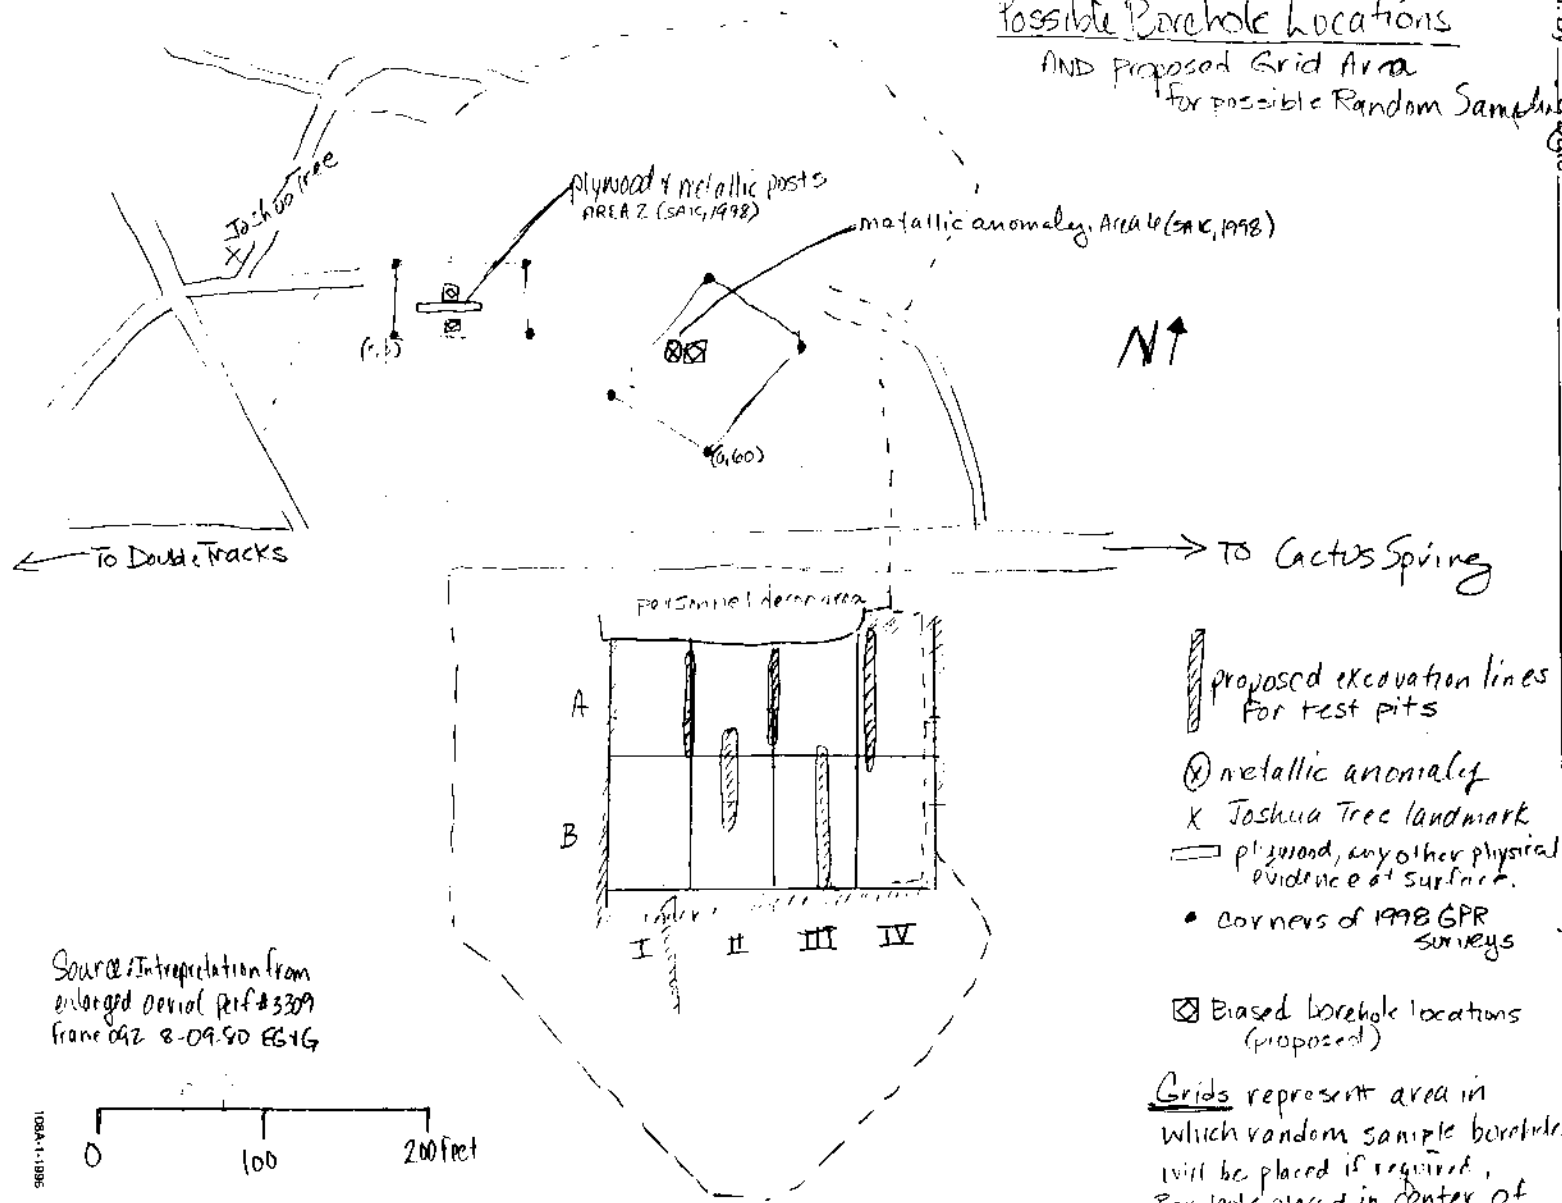 Possible Borehole Locations
AND proposed Grid Area
for possible Random
Joshua Tree
X
plywood & metallic posts
AREA 2 (SAIC, 1998)
metallic anomaly, Area 6 (SAIC, 1998)
N
(0,60)
To Double Tracks
To Cactus Spring
personnel decon area
A
B
I
II
III
IV
proposed excavation lines
for test pits
metallic anomaly
X Joshua Tree landmark
plywood, any other physical
evidence at surface.
corners of 1998 GPR
surveys
Biased borehole locations
(proposed)
Grids represent area in
which random sample
will be placed if required.
placed in center of
Source: Intrepretation from
enlarged aerial #3309
frame 092 8-09-80 EG&G
0
100
200 feet
108A-1-1996